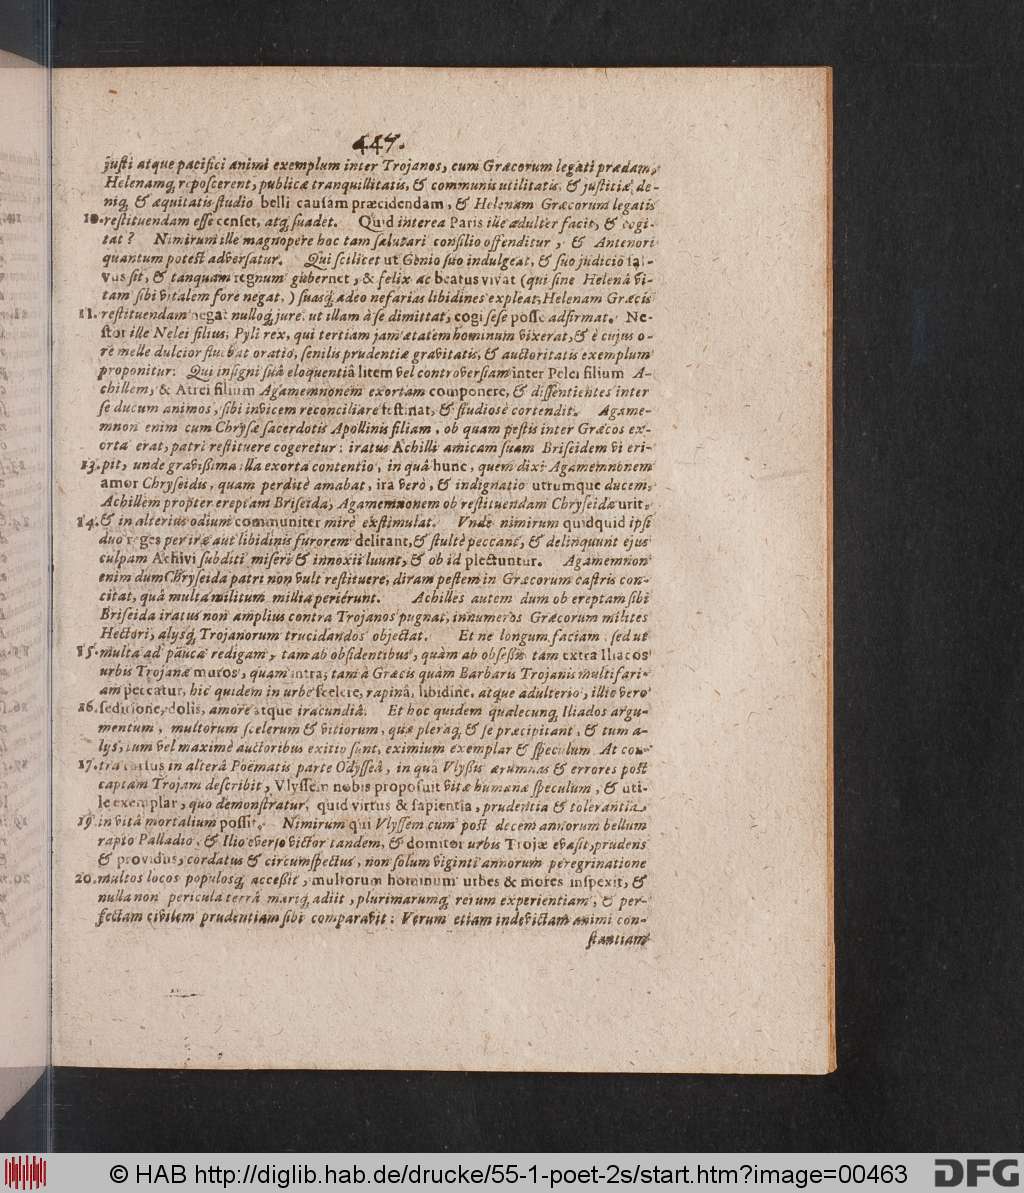 447.
justi atque pacifici animi exemplum inter Trojanos, cum Græcorum legati prædam,
Helenamq; reposcerent, publicæ tranquillitatis, & communis utilitatis, & justitiæ de-
niq; & æquitatis studio belli causam præcidendam, & Helenam Græcorum legatis
10. restituendam esse censet, atq; suadet. Quid interea Paris ille adulter facit, & cogi-
tat? Nimirum ille magnopere hoc tam salutari consilio offenditur, & Antenori
quantum potest adversatur. Qui scilicet ut Genio suo indulgeat, & suo judicio sal-
vus sit, & tanquam regnum gubernet, & felix ac beatus vivat (qui sine Helenâ vi-
tam sibi vitalem fore negat,) suasq; adeo nefarias libidines expleat, Helenam Græcis
11. restituendam negat nulloq; jure, ut illam à se dimittat, cogi sese posse adfirmat. Ne-
stor ille Nelei filius, Pyli rex, qui tertiam jam ætatem hominum vixerat, & è cujus o-
re melle dulcior fluebat oratio, senilis prudentiæ gravitatis, & auctoritatis exemplum
proponitur: Qui insigni suâ eloquentiâ litem vel controversiam inter Pelei filium A-
chillem, & Atrei filium Agamemnonem exortam componere, & dissentientes inter
se ducum animos, sibi invicem reconciliare festinat, & studiosè contendit. Agame-
mnon enim cum Chrysæ sacerdotis Apollinis filiam, ob quam pestis inter Græcos ex-
orta erat, patri restituere cogeretur: iratus Achilli amicam suam Briseidem vi eri-
13. pit, unde gravissima illa exorta contentio, in quâ hunc, quem dixi Agamemnonem
amor Chryseidis, quam perditè amabat, ira verò, & indignatio utrumque ducem,
Achillem propter ereptam Briseida, Agamemnonem ob restituendam Chryseida urit,
14. & in alterius odium communiter mirè exstimulat. Vnde nimirum quidquid ipsi
duo reges per iræ aut libidinis furorem delirant, & stultè peccant, & delinquunt ejus
culpam Achivi subditi miseri & innoxii luunt, & ob id plectuntur. Agamemnon
enim dum Chryseida patri non vult restituere, diram pestem in Græcorum castris con-
citat, quâ multa militum millia periérunt. Achilles autem dum ob ereptam sibi
Briseida iratus non amplius contra Trojanos pugnat, innumeros Græcorum milites
Hectori, alysq; Trojanorum trucidandos objectat. Et ne longum faciam: sed ut
15. multa ad pauca redigam, tam ab obsidentibus, quàm ab obsessis tam extra Iliacos
urbis Trojanæ muros, quam intra; tam à Græcis quàm Barbaris Trojanis multifari-
am peccatur, hic quidem in urbe scelere, rapinâ, libidine, atque adulterio, illic vero
16. seditione, dolis, amore atque iracundiâ. Et hoc quidem qualecunq; Iliados argu-
mentum, multorum scelerum & vitiorum, quæ pleraq; & se præcipitant, & tum a-
lys, tum vel maximè auctoribus exitio sunt, eximium exemplar & speculum. At con-
17. tra rursus in alterâ Poëmatis parte Odysseâ, in quâ Vlyssis ærumnas & errores post
captam Trojam describit, Vlyssem nobis proposuit vitæ humanæ speculum, & uti-
le exemplar, quo demonstratur, quid virtus & sapientia, prudentia & tolerantia,
19. in vitâ mortalium possit. Nimirum qui Vlyssem cum post decem annorum bellum
rapto Palladio, & Ilio everso victor tandem, & domitor urbis Trojæ evasit, prudens
& providus, cordatus & circumspectus, non solum viginti annorum peregrinatione
20. multos locos populosq; accessit, multorum hominum urbes & mores inspexit, &
nulla non pericula terrâ mariq; adiit, plurimarumq; rerum experientiam, & per-
fectam civilem prudentiam sibi comparavit: Verum etiam indevictam animi con-
stantiam
© HAB http://diglib.hab.de/drucke/55-1-poet-2s/start.htm?image=00463
DFG